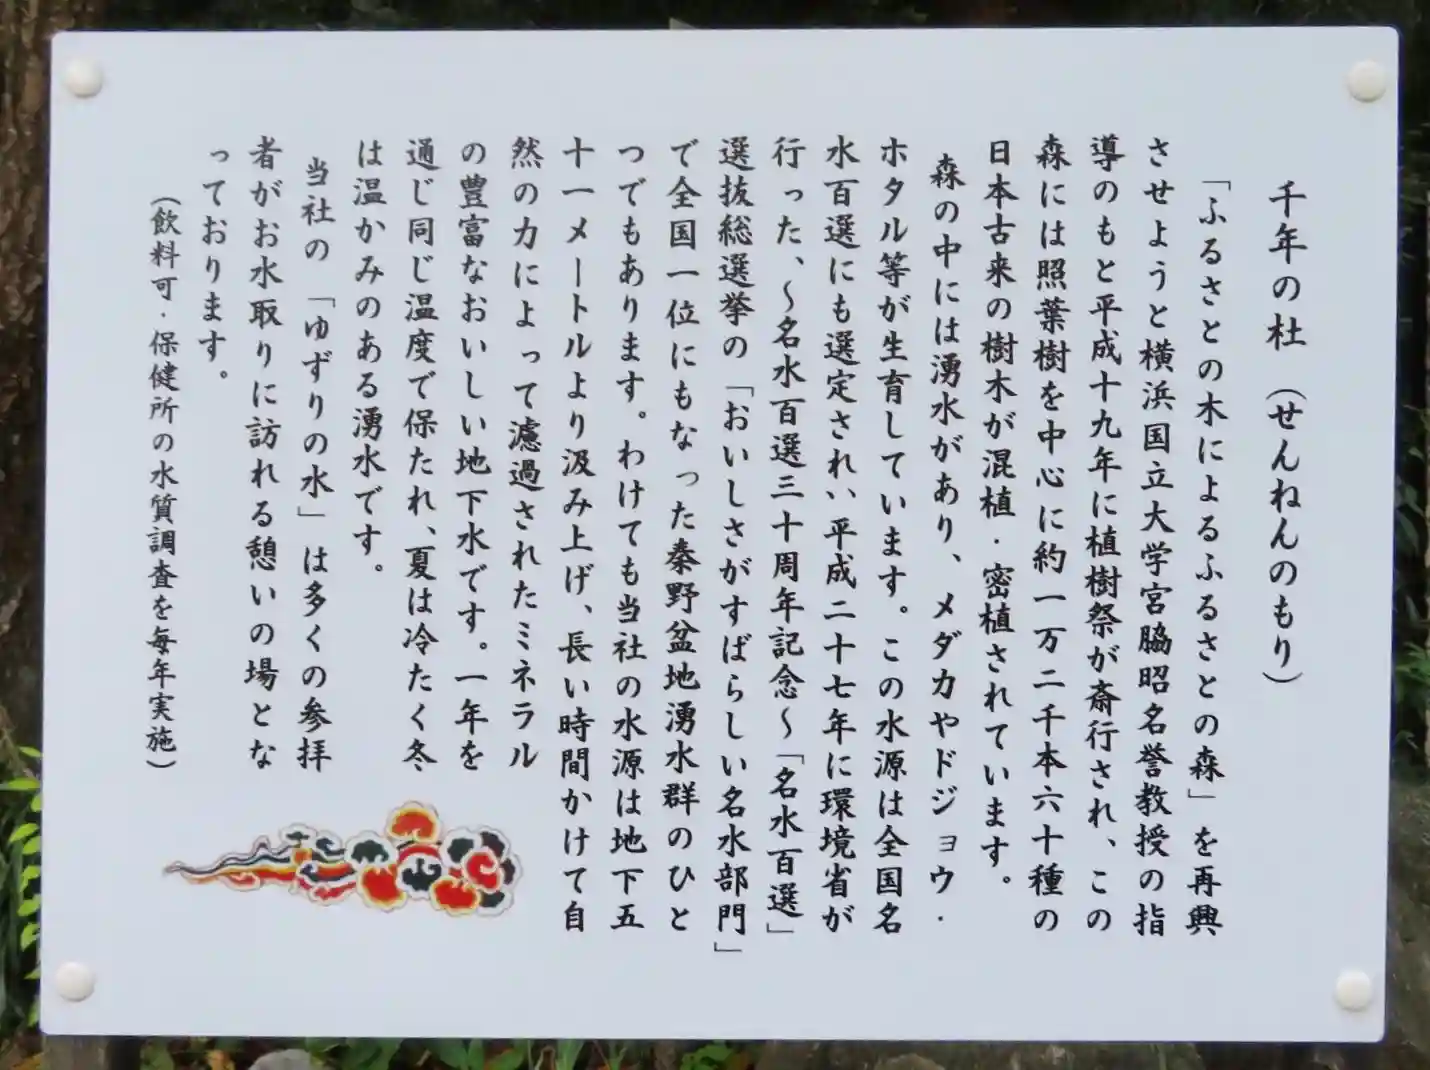 千年の杜 （せんねんのもり）
「ふるさとの木によるふるさとの森」を再興
させようと横浜国立大学宮脇昭名誉教授の指
導のもと平成十九年に植樹祭が斎行され、この
森には照葉樹を中心に約一万二千本六十種の
日本古来の樹木が混植・密植されています。
森の中には湧水があり、メダカやドジョウ・
ホタル等が生育しています。この水源は全国名
水百選にも選定され、平成二十七年に環境省が
行った、～名水百選三十周年記念～「名水百選」
選抜総選挙の「おいしさがすばらしい名水部門」
で全国一位にもなった秦野盆地湧水群のひと
つでもあります。わけても当社の水源は地下五
十一メートルより汲み上げ、長い時間かけて自
然の力によって濾過されたミネラル
の豊富なおいしい地下水です。一年を
通じ同じ温度で保たれ、夏は冷たく冬
は温かみのある湧水です。
当社の「ゆずりの水」は多くの参拝
者がお水取りに訪れる憩いの場とな
っております。
（飲料可・保健所の水質調査を毎年実施）